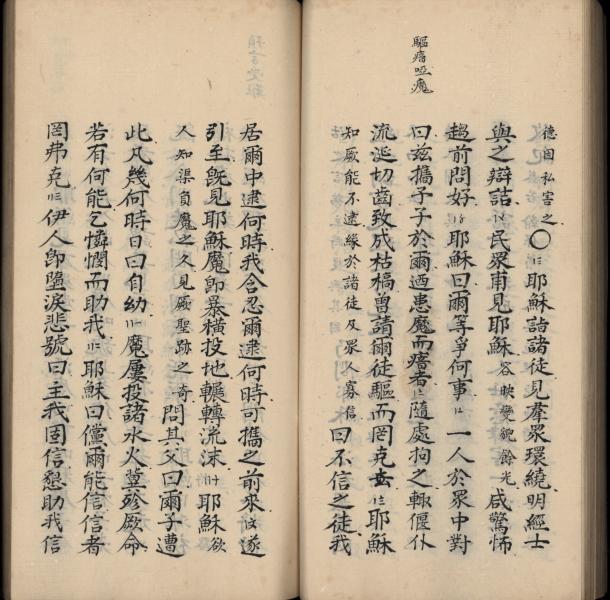 驅瘖啞魔
德因私害之〇耶穌詣諸徒見羣眾環繞明經士
與之辯詰民眾甫見耶穌容映變貌餘光咸驚怖
趨前問好耶穌曰爾等爭何事一人於眾中對
曰茲攜子子於爾迺患魔而瘖者隨處拘之輙偃仆
流涎切齒致成枯槁曾請爾徒驅而罔克去耶穌
知厥能不逮緣於諸徒及眾人寡信曰不信之徒我
居爾中逮何時我含忍爾逮何時可攜之前來遂
引至旣見耶穌魔卽暴橫投地輾轉流沫耶穌欲
人知渠負魔之久見厥聖跡之奇問其父曰爾子遭
此凡幾何時日曰自幼魔屢投諸水火冀殄厥命
若有何能乞憐憫而助我耶穌曰儻爾能信信者
罔弗克伊人卽墮淚悲號曰主我固信懇助我信